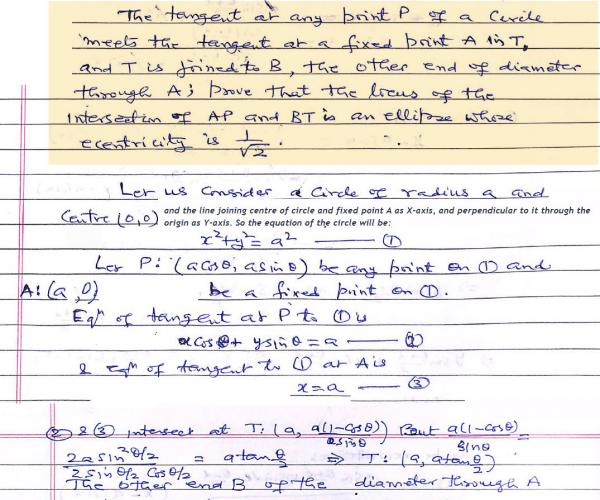 The tangent at any point P of a Circle
meets the tangent at a fixed point A in T,
and T is joined to B, the other end of diameter
through A; prove that the locus of the
intersection of AP and BT is an ellipse whose
eccentricity is 1/√2.
Let us Consider a Circle of radius a and
Centre (0,0) and the line joining centre of circle and fixed point A as X-axis, and perpendicular to it through the
origin as Y-axis. So the equation of the circle will be:
x²+y²= a² —— ①
Let P: (a cosθ, a sinθ) be any point on ① and
A: (a, 0) be a fixed point on ①.
Eqⁿ of tangent at P to ① is
x cosθ + y sinθ = a —— ②
& Eqⁿ of tangent to ① at A is
x = a —— ③
② & ③ intersect at T: (a, a(1-cosθ)/a sinθ) But a(1-cosθ)/sinθ =
2a sin²θ/2 / 2 sinθ/2 cosθ/2 = a tan θ/2 ⇒ T: (a, a tan θ/2)
The other end B of the diameter through A